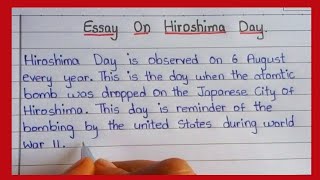 Essay On Hiroshima Day.
Hiroshima Day is observed on 6 August
every year. This is the day when the atomtic
bomb was dropped on the Japanese City of
Hiroshima. This day is reminder of the
bombing by the united States during world
War II.